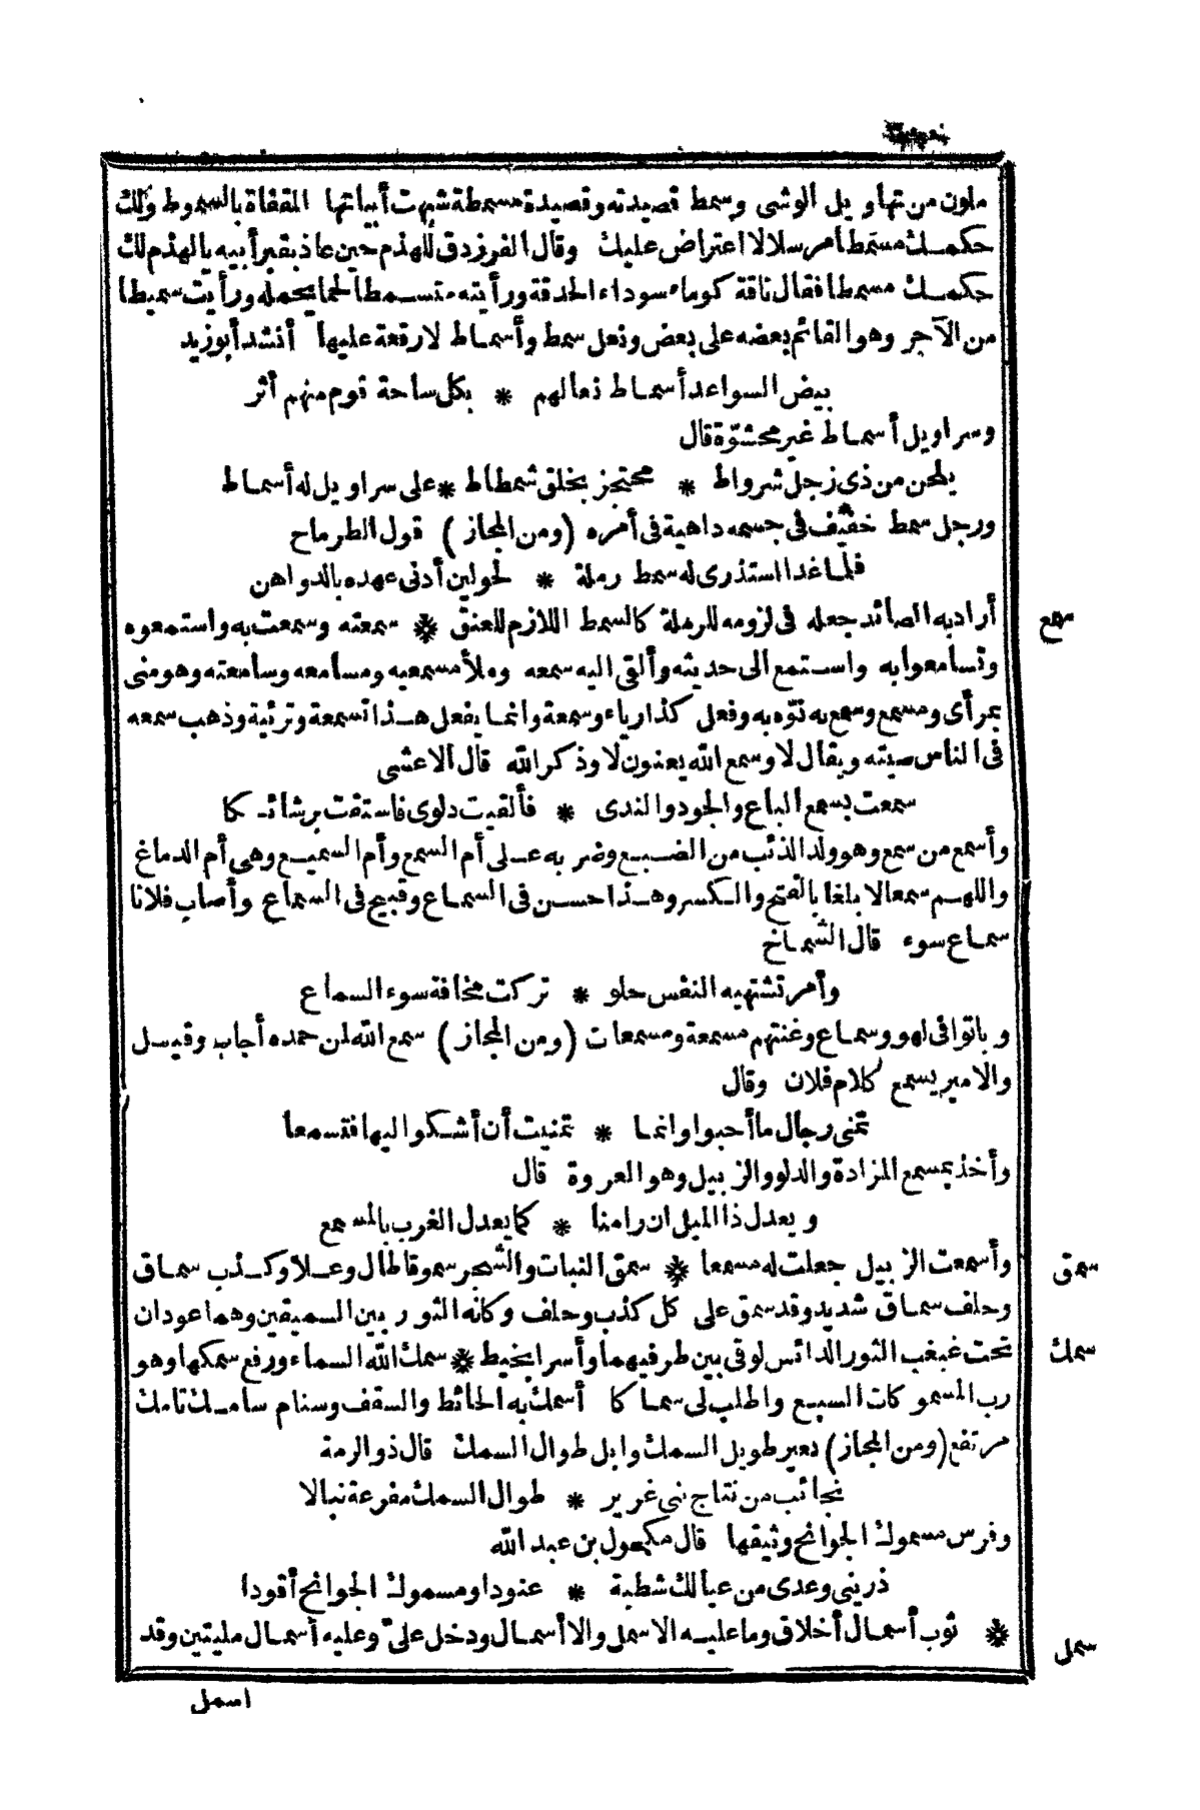 ملون من تهاويل الوشى وسمط قصيدته وقصيدة مسمطة شبهت أبياتها المقفاة بالسموط ولك
حكمك مسمطا أمر سلا لا اعتراض عليك وقال الفرزدق للهذم حين عاذ بقبر أبيه يالهذم لك
حكمك مسمطا فقال ناقة كوماء سوداء الحدقة ورأيته متسمطا لحما يحمله ورأيت سميطا
من الآجر وهو القائم بعضه على بعض ونعل سمط وأسماط لا رقعة عليها أنشد أبو زيد
بيض السواعد أسماط نعالهم * بكل ساحة قوم منهم أثر
وسراويل أسماط غير محشوّة قال
يلحن من ذى زجل شرواط * محتجز بخلق شمطاط * على سراويل له أسماط
ورجل سمط خفيف فى جسمه داهية فى أمره (ومن المجاز) قول الطرماح
فلما غدا استذرى له سمط رملة * لحولين أدنى عهده بالدواهن
سمع
أراد به الصائد جعله فى لزومه للرملة كالسمط اللازم للعنق * سمعته وسمعت به واستمعوه
وتسامعوا به واستمع الى حديثه وألقى اليه سمعه وملأ مسمعيه ومسامعه وسامعته وهو منى
بمرأى ومسمع وسمع به نوّه به وفعل كذا رياء وسمعة وانما يفعل هذا تسمعة وترئية وذهب سمعه
فى الناس صيته ويقال لا وسمع الله يعنون لا وذكر الله قال الاعشى
سمعت بسمع الباع والجود والندى * فألقيت دلوى فاستقت برشائكا
وأسمع من سمع وهو ولد الذئب من الضبع وضربه على أم السمع وأم السميع وهى أم الدماغ
واللهم سمعا لا بلغا بالفتح والكسر وهذا حسن فى السماع وقبيح فى السماع وأصاب فلانا
سماع سوء قال الشماخ
وأمر تشتهيه النفس حلو * تركت مخافة سوء السماع
وباتوا فى لهو وسماع وغنتهم مسمعة ومسمعات (ومن المجاز) سمع الله لمن حمده أجاب وقيل
والامير يسمع كلام فلان وقال
تمنى رجال ما أحبوا وانما * تمنيت أن أشكو اليها فتسمعا
وأخذ بمسمع المزادة والدلو والزبيل وهو العروة قال
ويعدل ذا الميل ان رامنا * كما يعدل الغرب بالمسمع
سمق
وأسمعت الزبيل جعلت له مسمعا * سمق النبات والشجر سموقا طال وعلا وكذب سماق
وحلف سماق شديد وقد سمق على كل كذب وحلف وكأنه الثور بين السميقين وهما عودان
سمك
تحت غبغب الثور الدائس لوقى بين طرفيهما وأسرا بخيط * سمك الله السماء ورفع سمكها وهو
رب المسموكات السبع واطلب لى سماكا أسمك به الحائط والسقف وسنام سامك تامك
مرتفع (ومن المجاز) بعير طويل السمك وابل طوال السمك قال ذو الرمة
نجائب من نتاج بنى غرير * طوال السمك مفرعة نبالا
وفرس مسموك الجوانح وثيقها قال مكحول بن عبد الله
ذرينى وعدى من عيالك شطبة * عنودا ومسموك الجوانح أقودا
سمل
* ثوب أسمال أخلاق وما عليه الا سمل والا أسمال ودخل علىّ وعليه أسمال مليتين وقد
اسمل